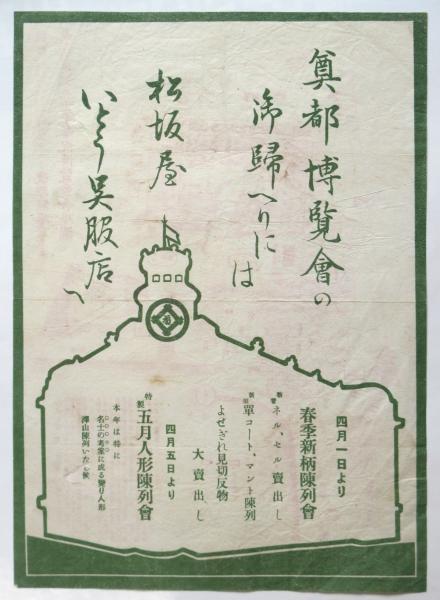 奠都博覧會の
御歸へりには
松坂屋
いとう呉服店へ
四月一日より
春季新柄陳列會
新着ネル、セル賣出し
新型單コート、マント陳列
よせぎれ見切反物
大賣出し
四月五日より
特製五月人形陳列會
本年は特に
名士の考案に成る變り人形
澤山陳列いたし候